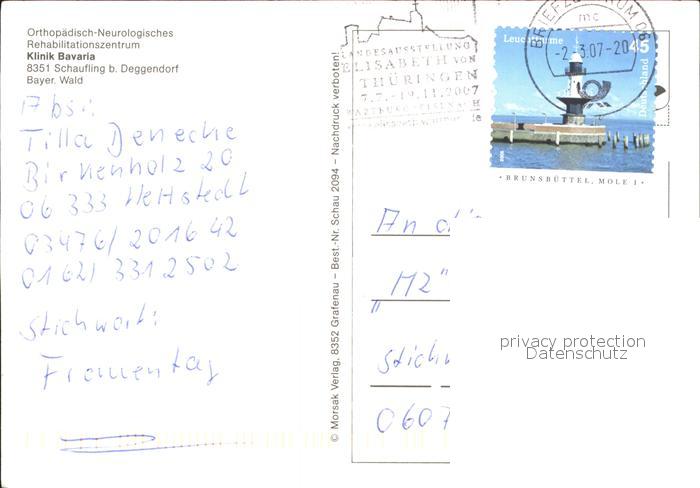 Orthopädisch-Neurologisches
Rehabilitationszentrum
Klinik Bavaria
8351 Schaufling b. Deggendorf
Bayer. Wald
Abs.:
Tilla Denecke
Birkenholz 20
06 333 Hettstedt
03476/ 201642
0162/ 3312502
Stichwort:
Frauentag
© Morsak Verlag, 8352 Grafenau – Best.-Nr. Schau 2094 – Nachdruck verboten!
LANDESAUSSTELLUNG
ELISABETH VON
THÜRINGEN
7.7.-19.11.2007
WARTBURG-EISENACH
BRIEFZENTRUM 06
mc
-2.-3.07-20
Leuchttürme
45
Deutschland
· BRUNSBÜTTEL, MOLE 1 ·
An di
"M2"
Stichw
0607
privacy protection
Datenschutz